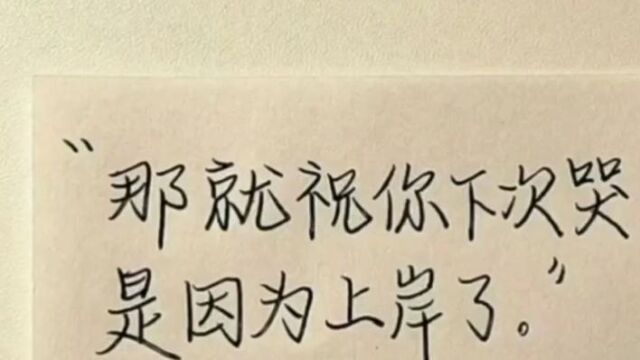 “那就祝你下次哭
是因为上岸了。”